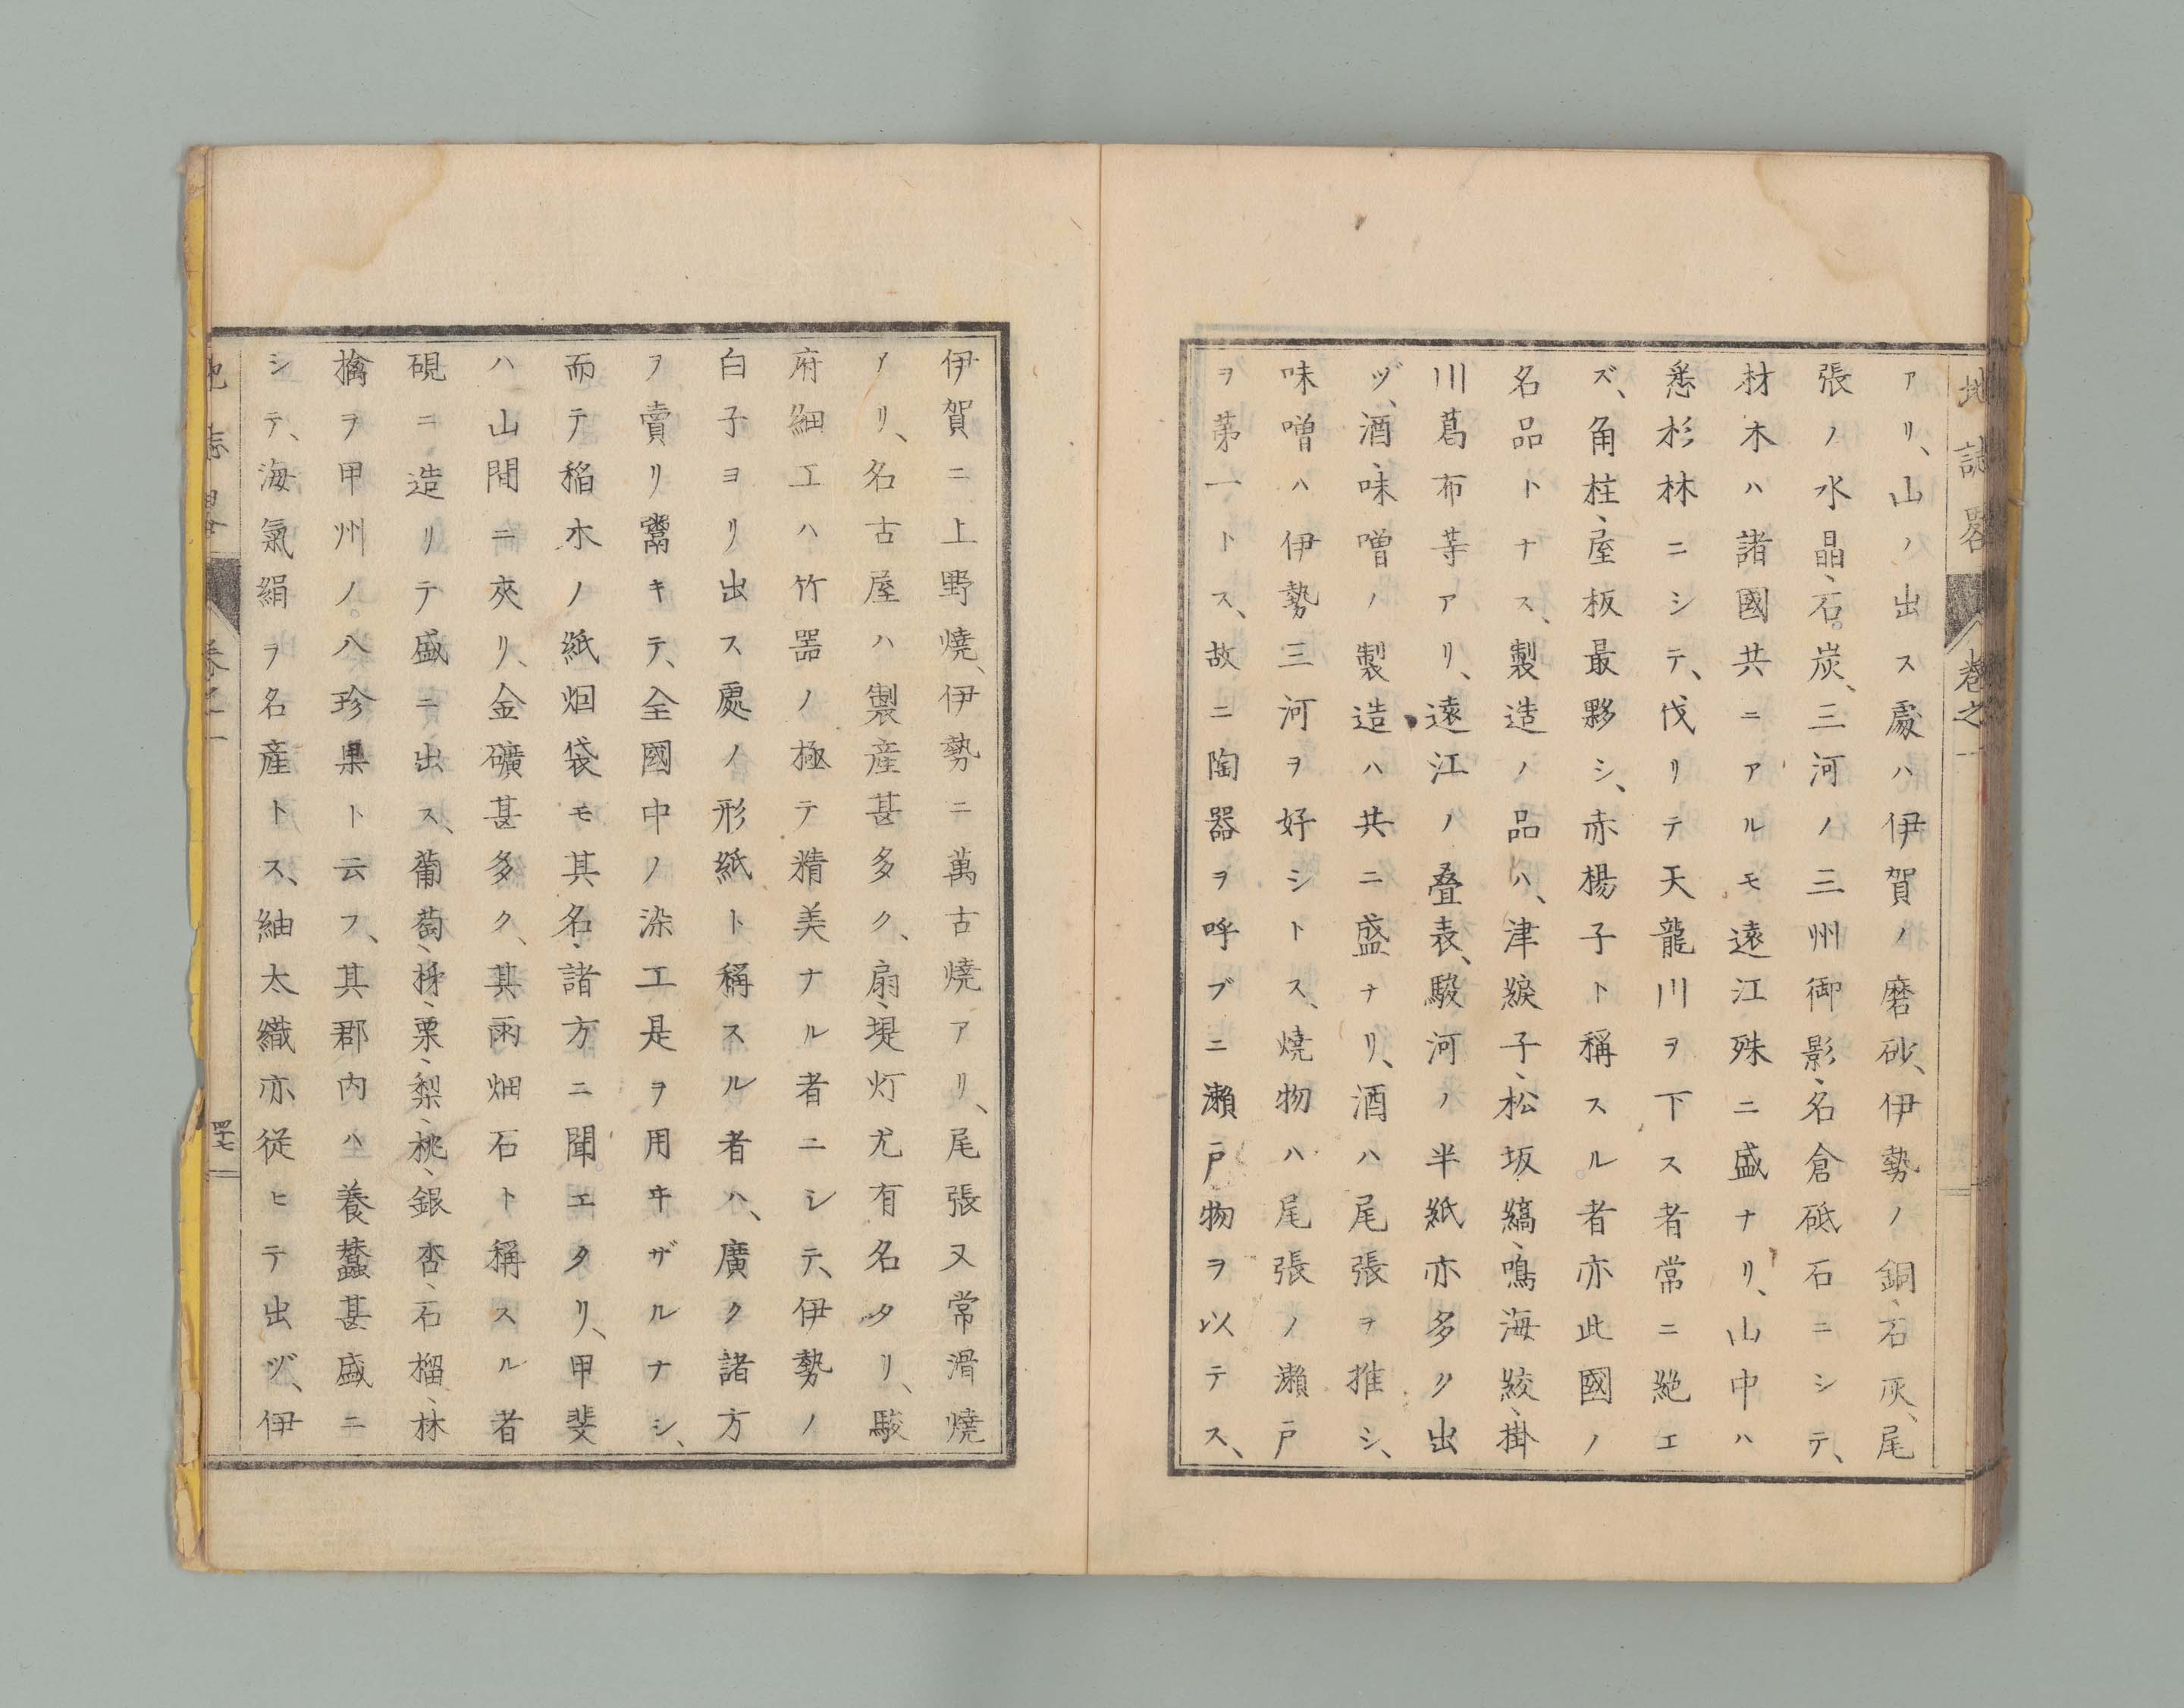 地誌畧 巻之一
アリ、山ノ出ス處ハ伊賀ノ磨砂、伊勢ノ銅、石灰、尾
張ノ水晶、石炭、三河ノ三州御影、名倉砥石ニシテ、
材木ハ諸國共ニアルモ遠江殊ニ盛ナリ、山中ハ
悉杉林ニシテ、伐リテ天龍川ヲ下ス者常ニ絶エ
ズ、角柱、屋板最夥シ、赤楊子ト稱スル者亦此國ノ
名品トナス、製造ノ品ハ、津綟子、松坂縞、鳴海絞、掛
川葛布等アリ、遠江ノ疊表、駿河ノ半紙亦多ク出
ヅ、酒、味噌ノ製造ハ共ニ盛ナリ、酒ハ尾張ヲ推シ、
味噌ハ伊勢三河ヲ好シトス、燒物ハ尾張ノ瀬戸
ヲ第一トス、故ニ陶器ヲ呼ブニ瀬戸物ヲ以テス、
伊賀ニ上野燒、伊勢ニ萬古燒アリ、尾張又常滑燒
アリ、名古屋ハ製産甚多ク、扇、提灯尤有名タリ、駿
府細工ハ竹噐ノ極テ精美ナル者ニシテ、伊勢ノ
白子ヨリ出ス處ノ形紙ト稱スル者ハ、廣ク諸方
ヲ賣リ鬻キテ、全國中ノ染工是ヲ用ヰザルナシ、
而テ稲木ノ紙烟袋モ其名、諸方ニ聞エタリ、甲斐
ハ山間ニ夾リ、金礦甚多ク、其雨畑石ト稱スル者
硯ニ造リテ盛ニ出ス、葡萄、柹、栗、梨、桃、銀杏、石榴、林
檎ヲ甲州ノ八珍果ト云フ、其郡内ハ養蠶甚盛ニ
シテ、海氣絹ヲ名産トス、紬太織亦從ヒテ出ヅ、伊
地誌畧 巻之一 四十七